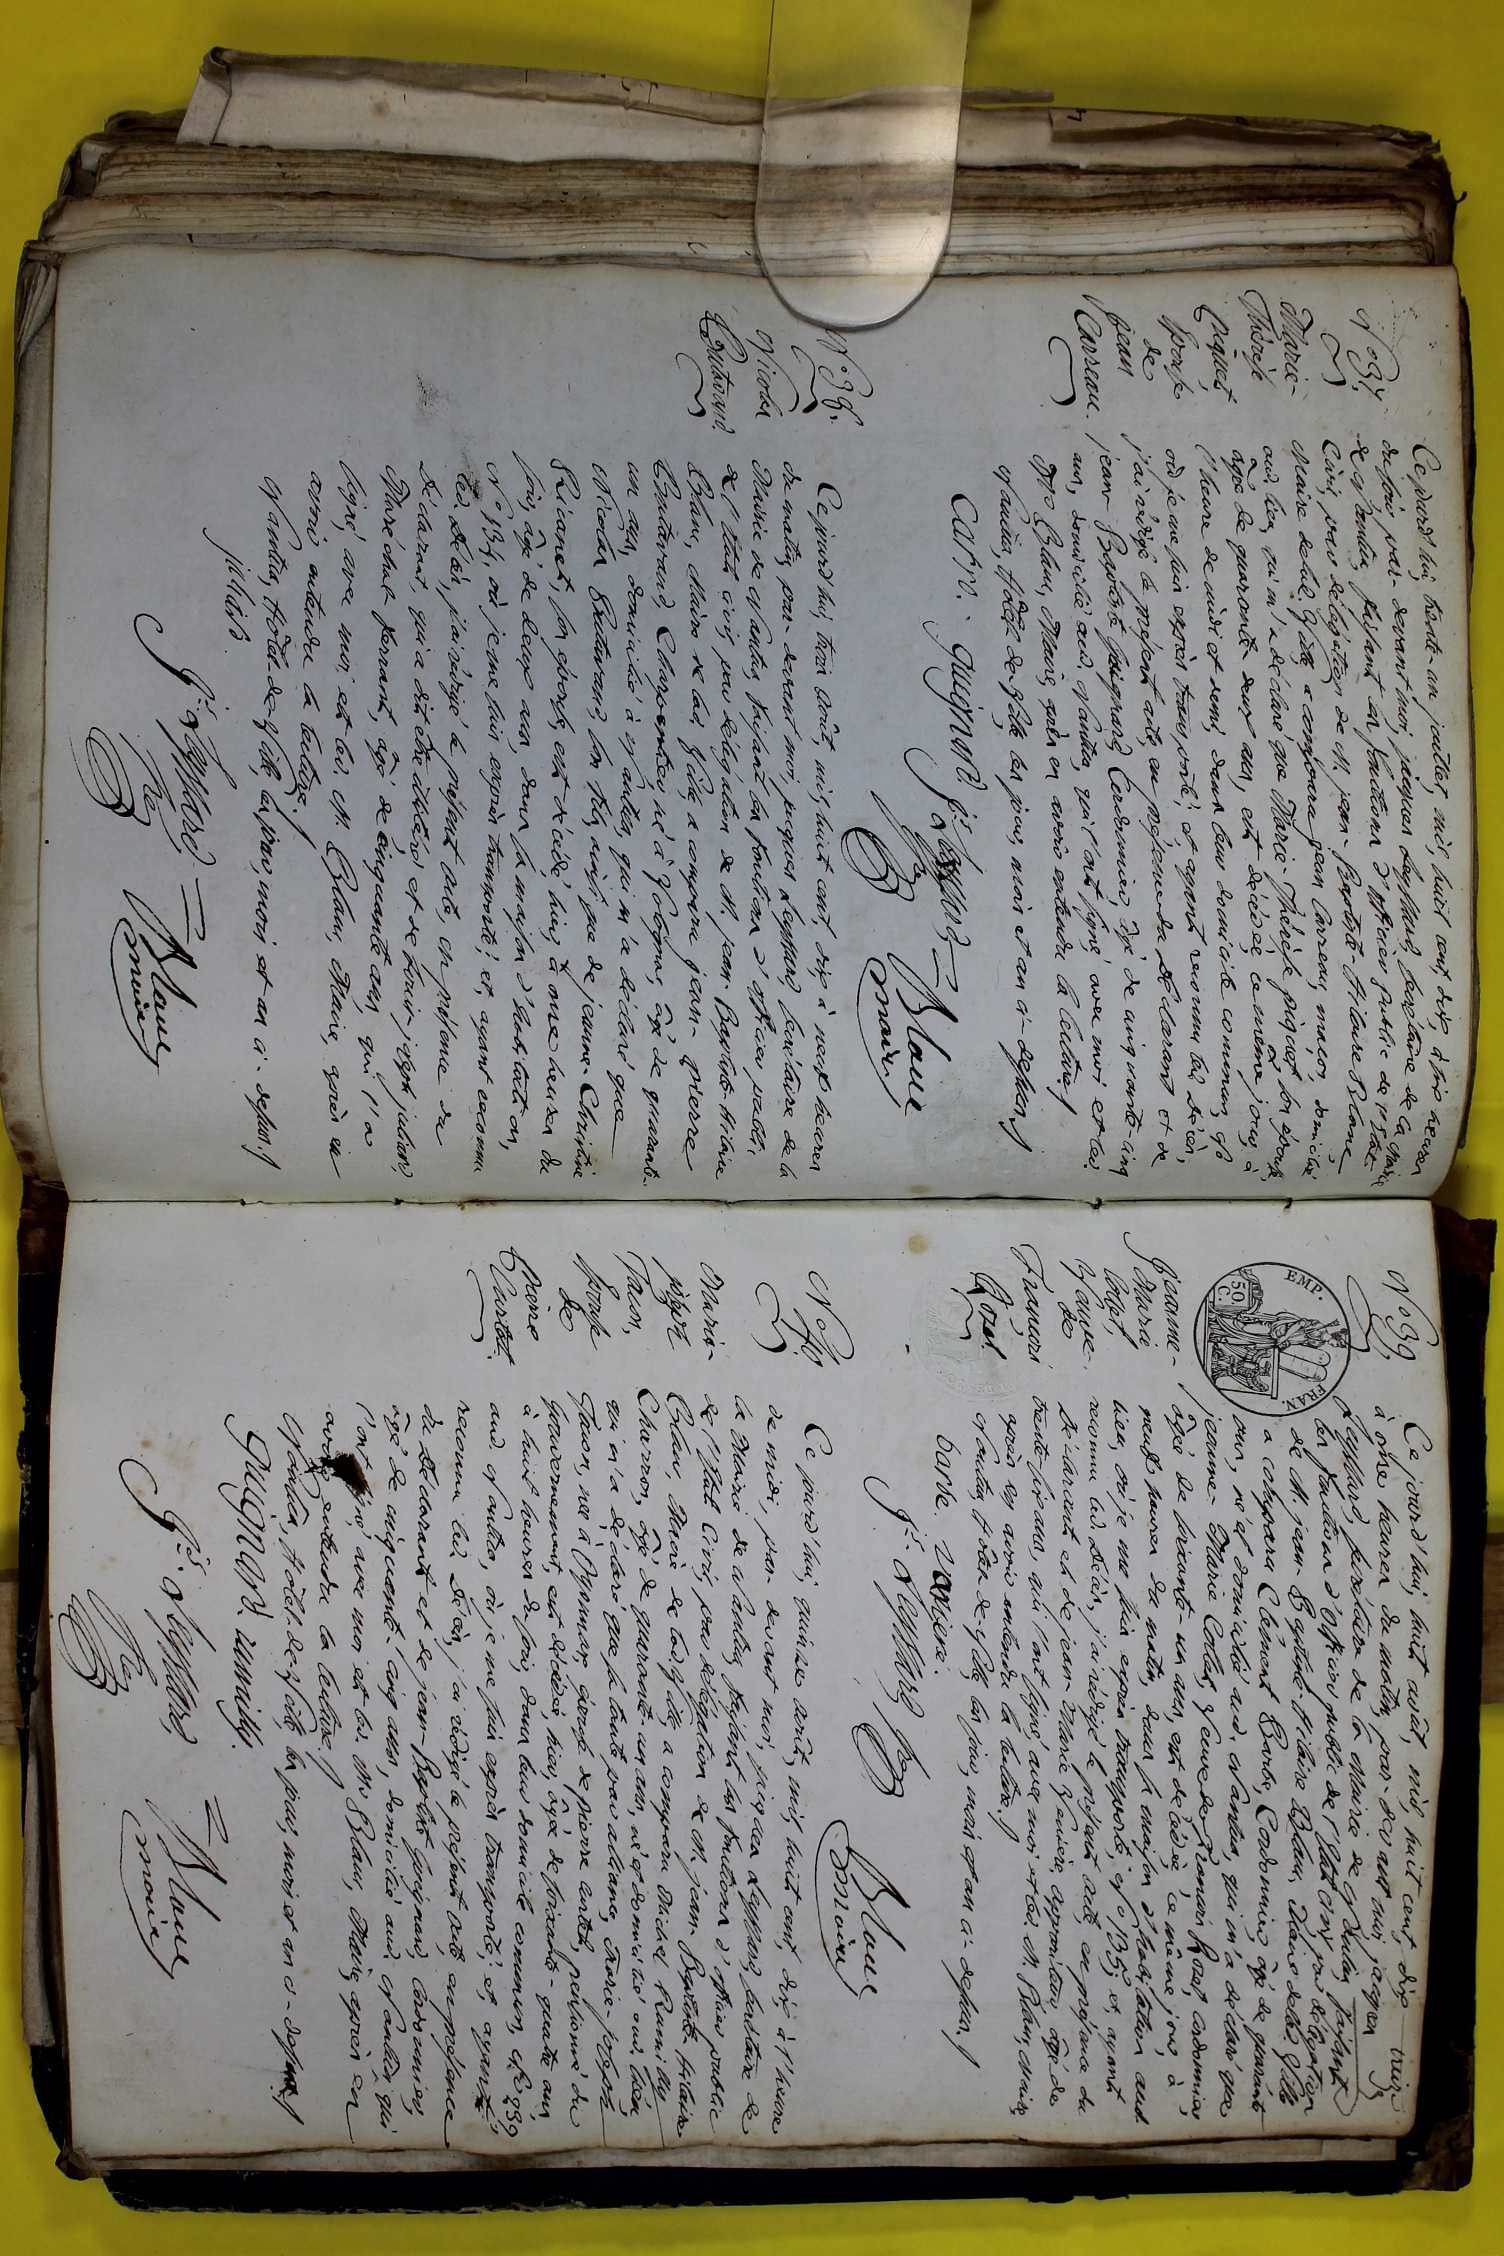 N.o 37.
Marie-
Thérèse
piquet,
Épouse
de
jean
Carreau.
Ce jourd'hui, trente-un juillet, mil huit cent dix, à six heures
du soir, par-devant moi, jacques Leyssard, secrétaire de la Mairie
de Nantua, faisant les fonctions d'officier public de l'État
Civil, par délégation de M. jean-Baptiste-Hilaire Blanc,
Maire de lad. Ville, a comparu jean Carreau, maçon, domicilié
aud. lieu, qui m'a déclaré que Marie-Thérèse piquet, son épouse,
âgée de quarante-deux ans, est décédée, ce même jour, à
l'heure de midi et demi, dans leur domicile commun, N.o
où je me suis exprès transporté, et ayant reconnu led. décès,
j'ai rédigé le présent acte, en présence du déclarant et de
jean-Baptiste guignard, Cordonnier, âgé de cinquante-cinq
ans, domicilié aud. Nantua, qui l'ont signé, avec moi et led.
M. Blanc, Maire, après en avoir entendu la lecture./
Nantua, Hôtel de Ville, les jour, mois et an ci-dessus./
guignard. J.s Leyssard
Sre
Blanc
maire
N.o 38.
Nicolas
Boutavand.
Ce jourd'hui, trois août, mil huit cent dix, à neuf heures
du matin, par-devant moi, jacques Leyssard, secrétaire de la
Mairie de Nantua, faisant les fonctions d'officier public
de l'État civil, par délégation de M. jean-Baptiste-Hilaire
Blanc, Maire de lad. Ville, a comparu jean-pierre
Boutavand, Charpentier, né à âgé de quarante-
un ans, domicilié à Nantua, qui m'a déclaré que
Nicolas Boutavand, son fils, ainsi que de jeanne-Christine
son épouse, est décédé, hier, à onze heures du
soir, âgé de ans, dans sa maison d'habitation,
N.o 134, où je me suis exprès transporté; et, ayant reconnu
led. décès, j'ai rédigé le présent acte, en présence du
déclarant, qui a dit être illitéré, et de Louis-joseph julliard,
Maréchal-ferrant, âgé de cinquante ans, qui l'a
signé, avec moi et led. M. Blanc, Maire, après en
avoir entendu la lecture./
Nantua, Hôtel-de-Ville, les jour, mois et an ci-dessus./
J.s Leyssard
Sre
Blanc
maire
N.o 39.
Jeanne-
Marie
Collet,
Veuve
de
François
Rozet.
EMP. FRAN.
50.
C.
Ce jourd'hui, huit août, mil huit cent dix,
à onze heures du matin, par-devant moi, jacques
Leyssard, secrétaire de la Mairie de Nantua, faisant
les fonctions d'officier public de l'État civil, par délégation
de M. jean-Baptiste-Hilaire Blanc, Maire de lad. Ville,
a comparu Clément Barbe, Cordonnier, âgé de quarante
ans, né et domicilié aud. Nantua, qui m'a déclaré que
jeanne-Marie Collet, Veuve de François Rozet, cordonnier,
âgée de soixante-un ans, est décédée, ce même jour, à
neuf heures du matin, dans sa maison d'habitation, aud.
lieu, où je me suis exprès transporté, N.o 135; et, ayant
reconnu led. décès, j'ai rédigé le présent acte, en présence du
déclarant et de jean-Marie âgé de
trente-six ans, qui l'ont signé, avec moi et led. M. Blanc, Maire,
après en avoir entendu la lecture./
Nantua, Hôtel-de-Ville, les jour, mois et an ci-dessus./
barbe.
J.s Leyssard
Sre
Blanc
maire
N.o 40.
Marie-
joseph
Tacon,
Épouse
de
Pierre
Cartet.
Ce jourd'hui, quinze août, mil huit cent dix, à l'heure
de midi, par-devant moi, jacques Leyssard, secrétaire de
la Mairie de Nantua, faisant les fonctions d'officier public
de l'État Civil, par délégation de M. jean-Baptiste-Hilaire
Blanc, Maire de lad. Ville, a comparu Michel Rumilly,
Charron, âgé de quarante-un ans, né et domicilié aud. lieu,
qui m'a déclaré que sa tante par alliance, Marie-joseph
Tacon, née à Oyonnax, épouse de pierre Cartet, pensionné du
Gouvernement, est décédée, hier, âgée de soixante-quatre ans,
à huit heures du soir, dans leur domicile commun, N.o 239,
aud. Nantua, où je me suis exprès transporté; et, ayant
reconnu led. décès, j'ai rédigé le présent acte, en présence
du déclarant et de jean-Baptiste guignard, Cordonnier,
âgé de cinquante-cinq ans, domicilié aud. Nantua, qui
l'ont signé, avec moi et led. M. Blanc, Maire, après en
avoir entendu la lecture./
Nantua, Hôtel-de-Ville, les jour, mois et an ci-dessus./
guignard. rumilly.
J.s Leyssard,
Sre
Blanc
maire